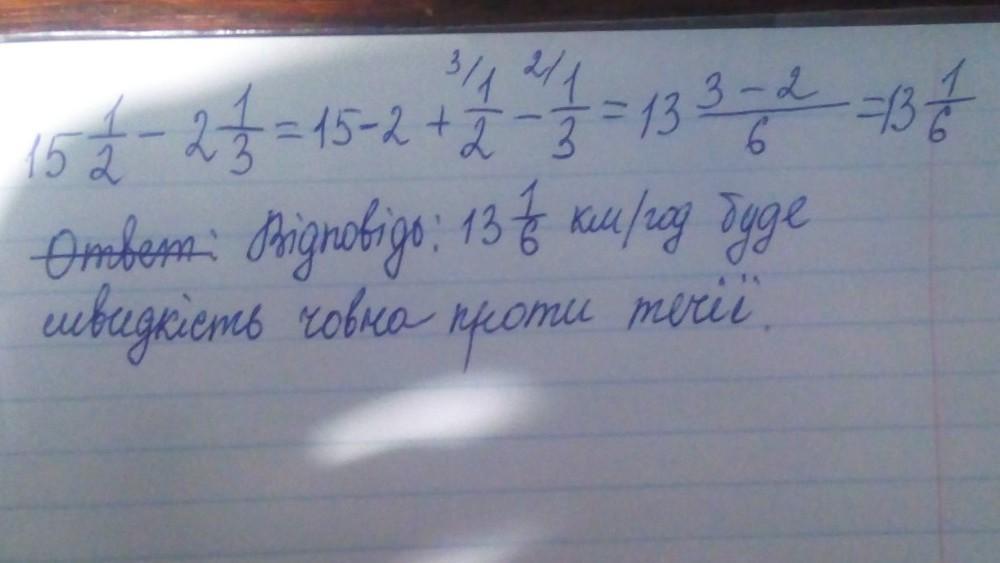 15 1/2 − 2 1/3 = 15-2 + ³/1/2 − ²/1/3 = 13 (3 − 2)/6 = 13 1/6
Ответ: Відповідь: 13 1/6 км/год буде
швидкість човна проти течії.